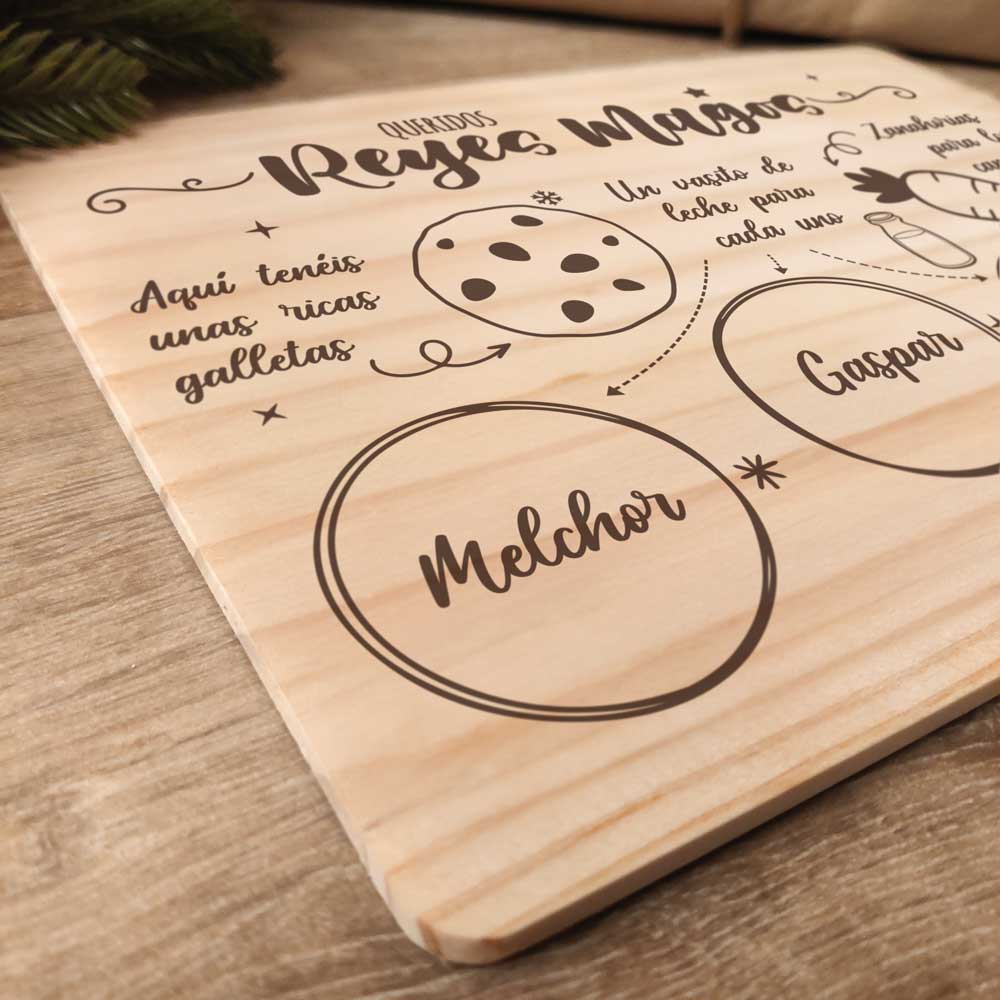 QUERIDOS
Reyes Magos
Aquí tenéis
unas ricas
galletas
Un vasito de
leche para
cada uno
Zanahorias
para
Melchor
Gaspar